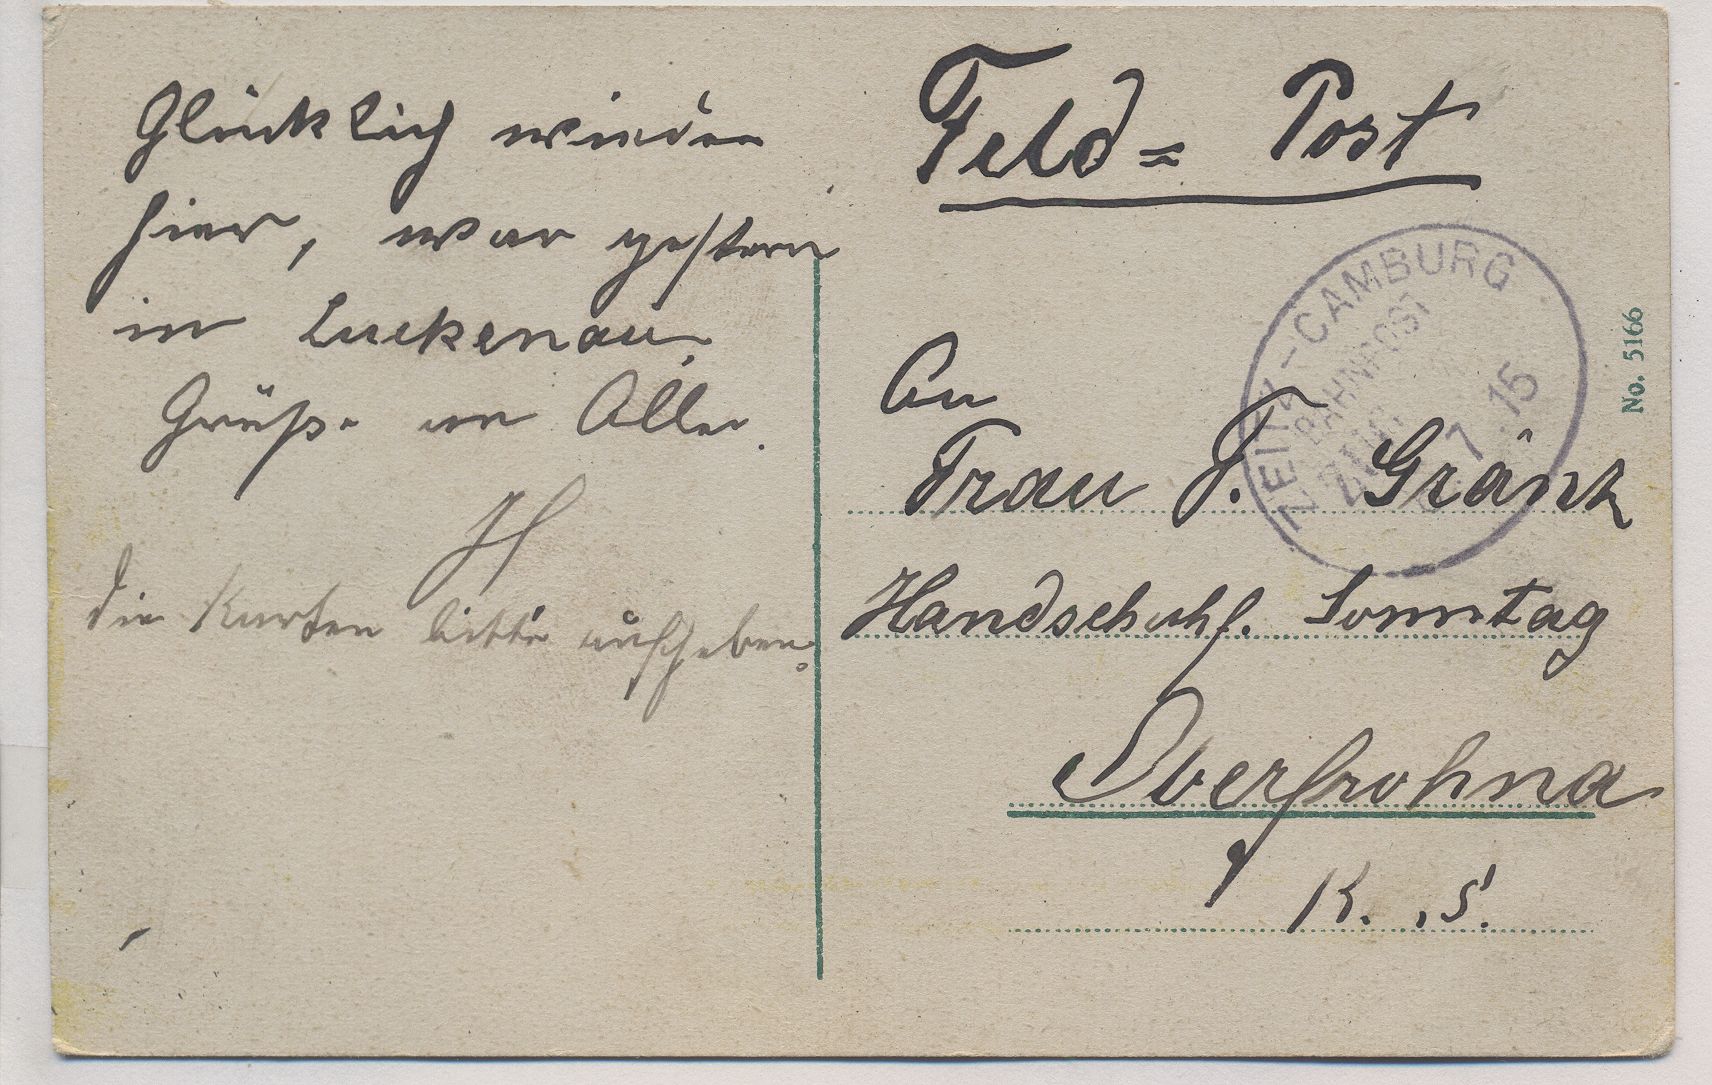 Glücklich wieder
hier, war gestern
in Luckenau.
Grüße an Alle.
die Karten bitte aufheben.
Feld = Post
ZEITZ-CAMBURG
BAHNPOST
ZUG
7.15
An
Frau F. Gränz
Handschuhf. Sonntag
Oberfrohna
K. S.
No. 5166